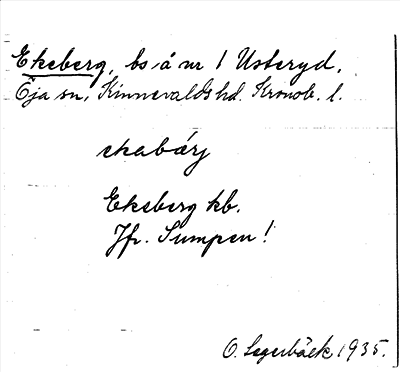 Ekeberg, bs å nr 1 Usteryd,
Öja sn, Kinnevalds hd. Kronob. l.
ekabärj
Ekeberg kb.
Jfr. Sumpen!
O. Lagerbäck 1935.